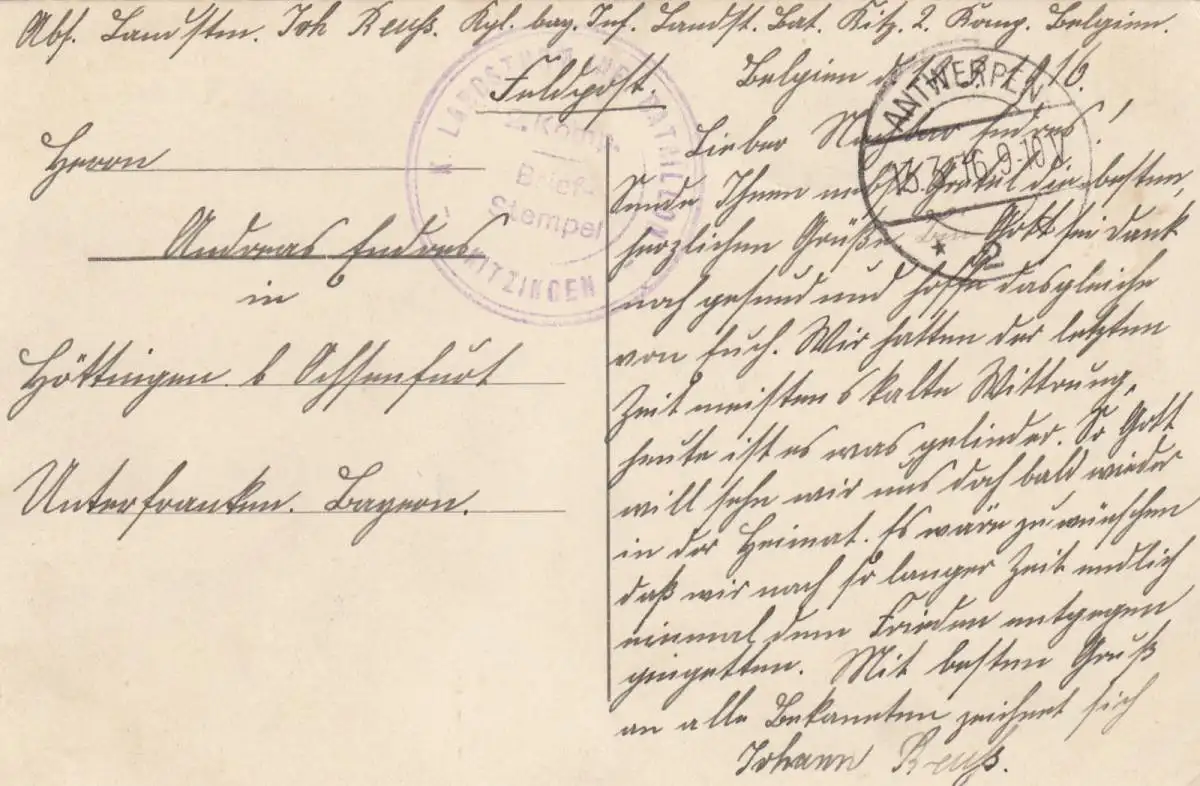 Abs. Landstm. Joh Reuß. Kgl. bay. Inf. Landst. Bat. Kitz. 2. Komp. Belgien.
Feldpost.
Herrn
Andreas Endres
in
Höttingen b Ochsenfurt
Unterfranken. Bayern.
K. LANDSTURM INF. BATAILLON
2. Komp.
Brief-
Stempel
KITZINGEN
ANTWERPEN
13.3.16. 9-10V
* 2
Belgien d. 1916.
Lieber Nachbar Endres!
Sende Ihnen nebst die besten,
herzlichen Grüße Bin Gott sei Dank
noch gesund und hoffe dasgleiche
von Euch. Wir hatten der letzten
Zeit meistens kalte Wittrung,
heute ist es was gelinder. So Gott
will sehn wir uns doch bald wieder
in der Heimat. Es wäre zu wünschen
daß wir nach so langer Zeit endlich
einmal dem Frieden entgegen
gingetten. Mit besten Gruß
an alle Bekannten zeichnet sich
Johann Reuß.